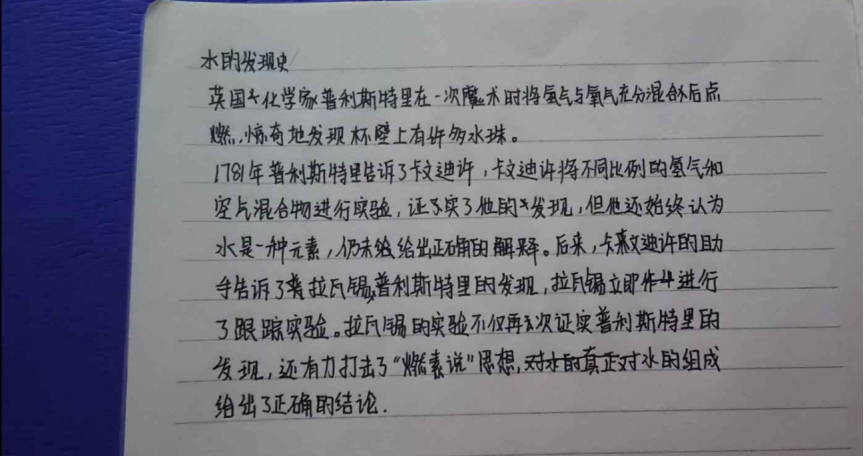 水的发现史
英国化学家普利斯特里在一次魔术时将氢气与氧气充分混合后点
燃,惊奇地发现杯壁上有许多水珠。
1781年普利斯特里告诉了卡文迪许,卡文迪许将不同比例的氢气和
空气混合物进行实验,证实了他的发现,但他还始终认为
水是一种元素,仍未给出正确的解释。后来,卡文迪许的助
手告诉了拉瓦锡普利斯特里的发现,拉瓦锡立即进行
了跟踪实验。拉瓦锡的实验不仅再次证实普利斯特里的
发现,还有力打击了“燃素说”思想,对水的组成
给出了正确的结论.